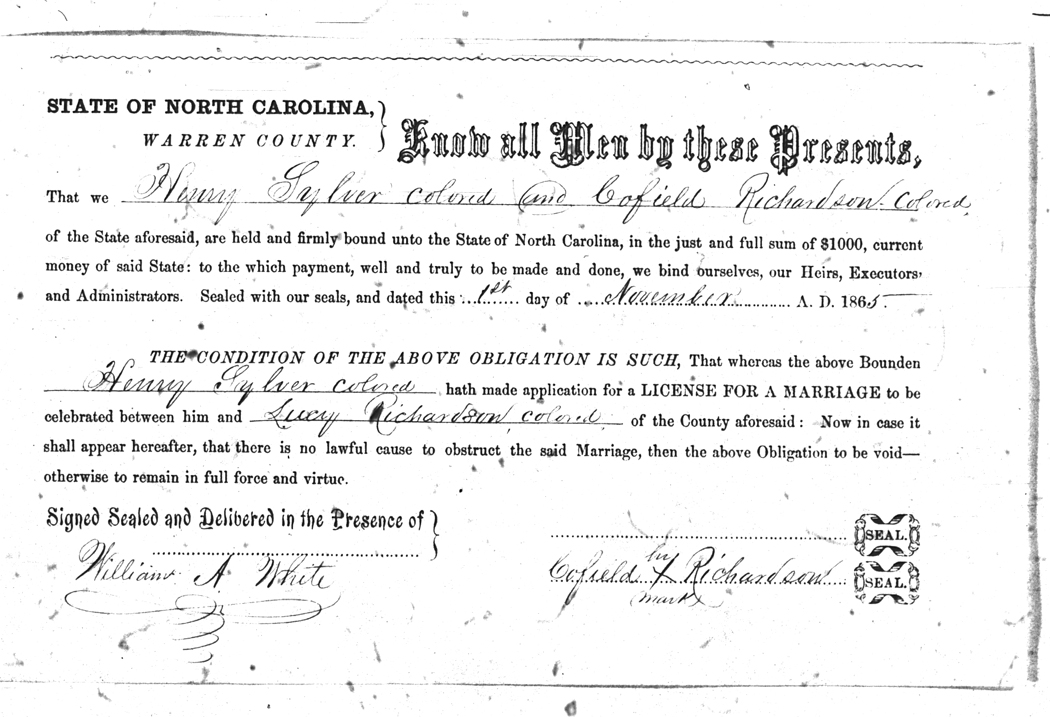 STATE OF NORTH CAROLINA,
WARREN COUNTY.
Know all Men by these Presents,
That we Henry Sylver colored and Cofield Richardson colored,
of the State aforesaid, are held and firmly bound unto the State of North Carolina, in the just and full sum of $1000, current
money of said State: to the which payment, well and truly to be made and done, we bind ourselves, our Heirs, Executors,
and Administrators. Sealed with our seals, and dated this 1st day of November A. D. 1865
THE CONDITION OF THE ABOVE OBLIGATION IS SUCH, That whereas the above Bounden
Henry Sylver colored hath made application for a LICENSE FOR A MARRIAGE to be
celebrated between him and Lucy Richardson, colored, of the County aforesaid: Now in case it
shall appear hereafter, that there is no lawful cause to obstruct the said Marriage, then the above Obligation to be void—
otherwise to remain in full force and virtue.
Signed Sealed and Delibered in the Presence of
SEAL.
William A White
Cofield by X Richardson SEAL.
mark